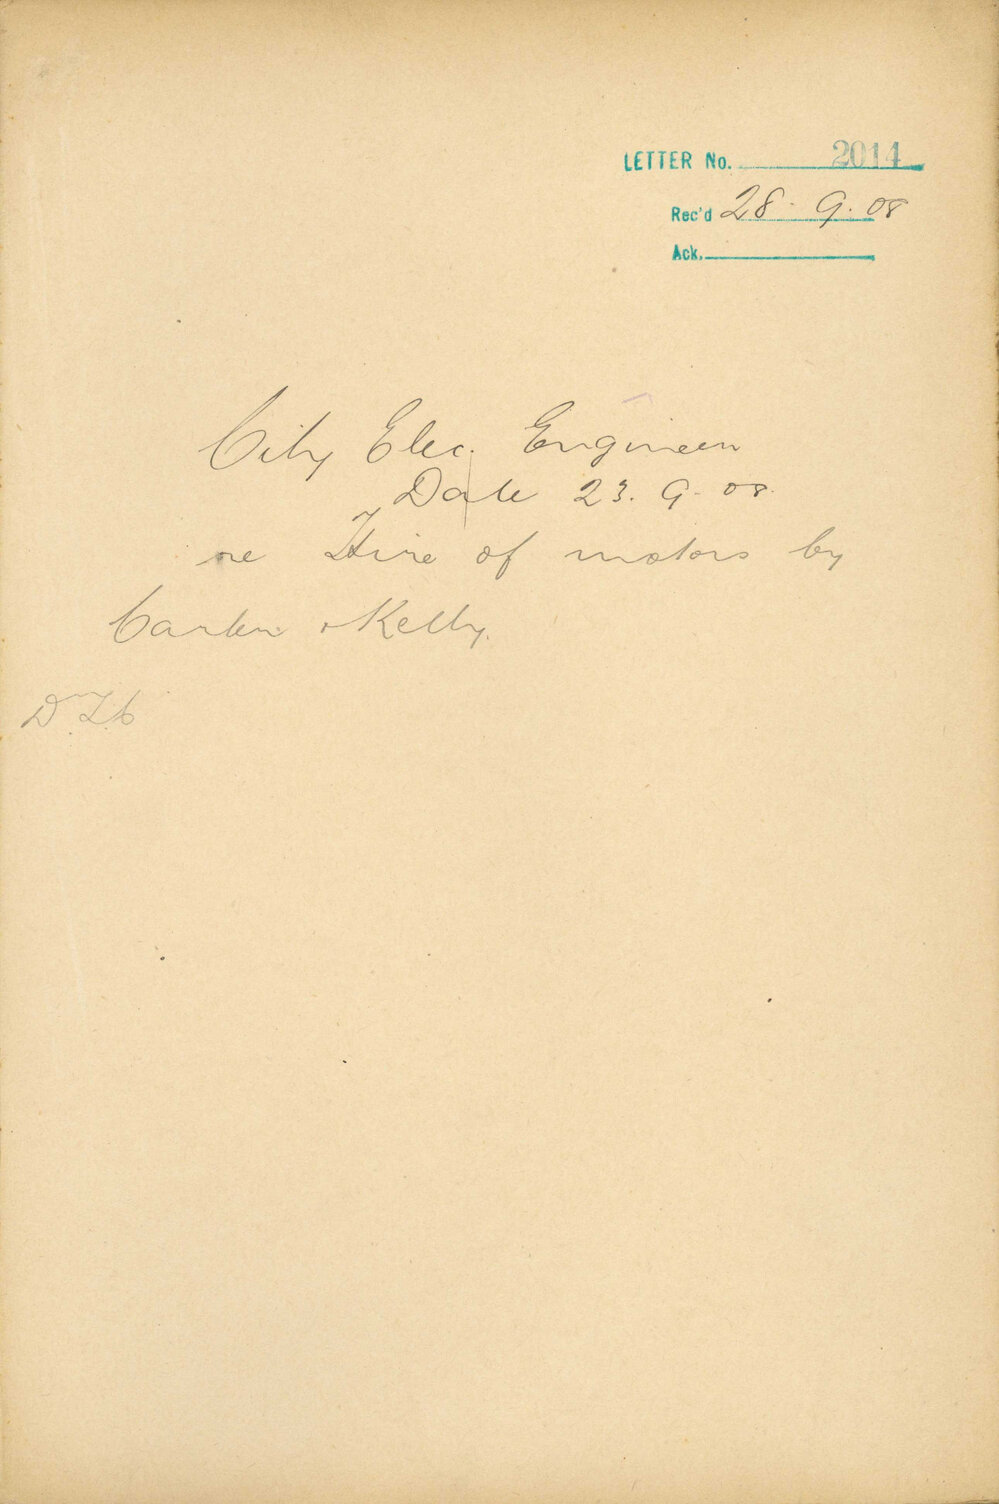 LETTER No. 2014
Rec'd 28. 9. 08
Ack.
City Elec. Engineer
Date 23. 9. 08.
re Hire of motors by
& Kelly.